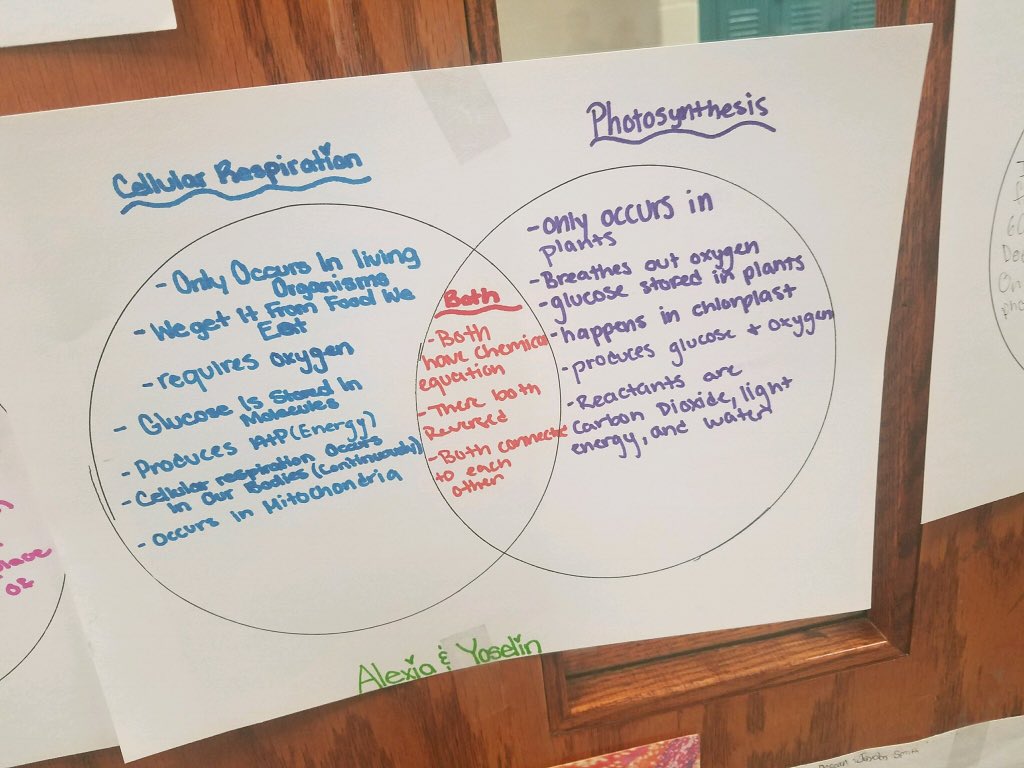 Cellular Respiration
- Only Occurs In living
Organisms
- We get It From Food We
Eat
- requires oxygen
- Glucose Is Stored In
Molecules
- Produces ATP (Energy)
- Cellular respiration Occurs
in Our Bodies (Continuously)
- occurs in Mitochondria
Both
- Both
have chemical
equation
- There both
Reversed
- Both connected
to each
other
Photosynthesis
- only occurs in
plants
- Breathes out oxygen
- glucose stored in plants
- happens in chlorplast
- produces glucose + oxygen
- Reactants are
Carbon Dioxide, light
energy, and water
Alexia & Yoselin